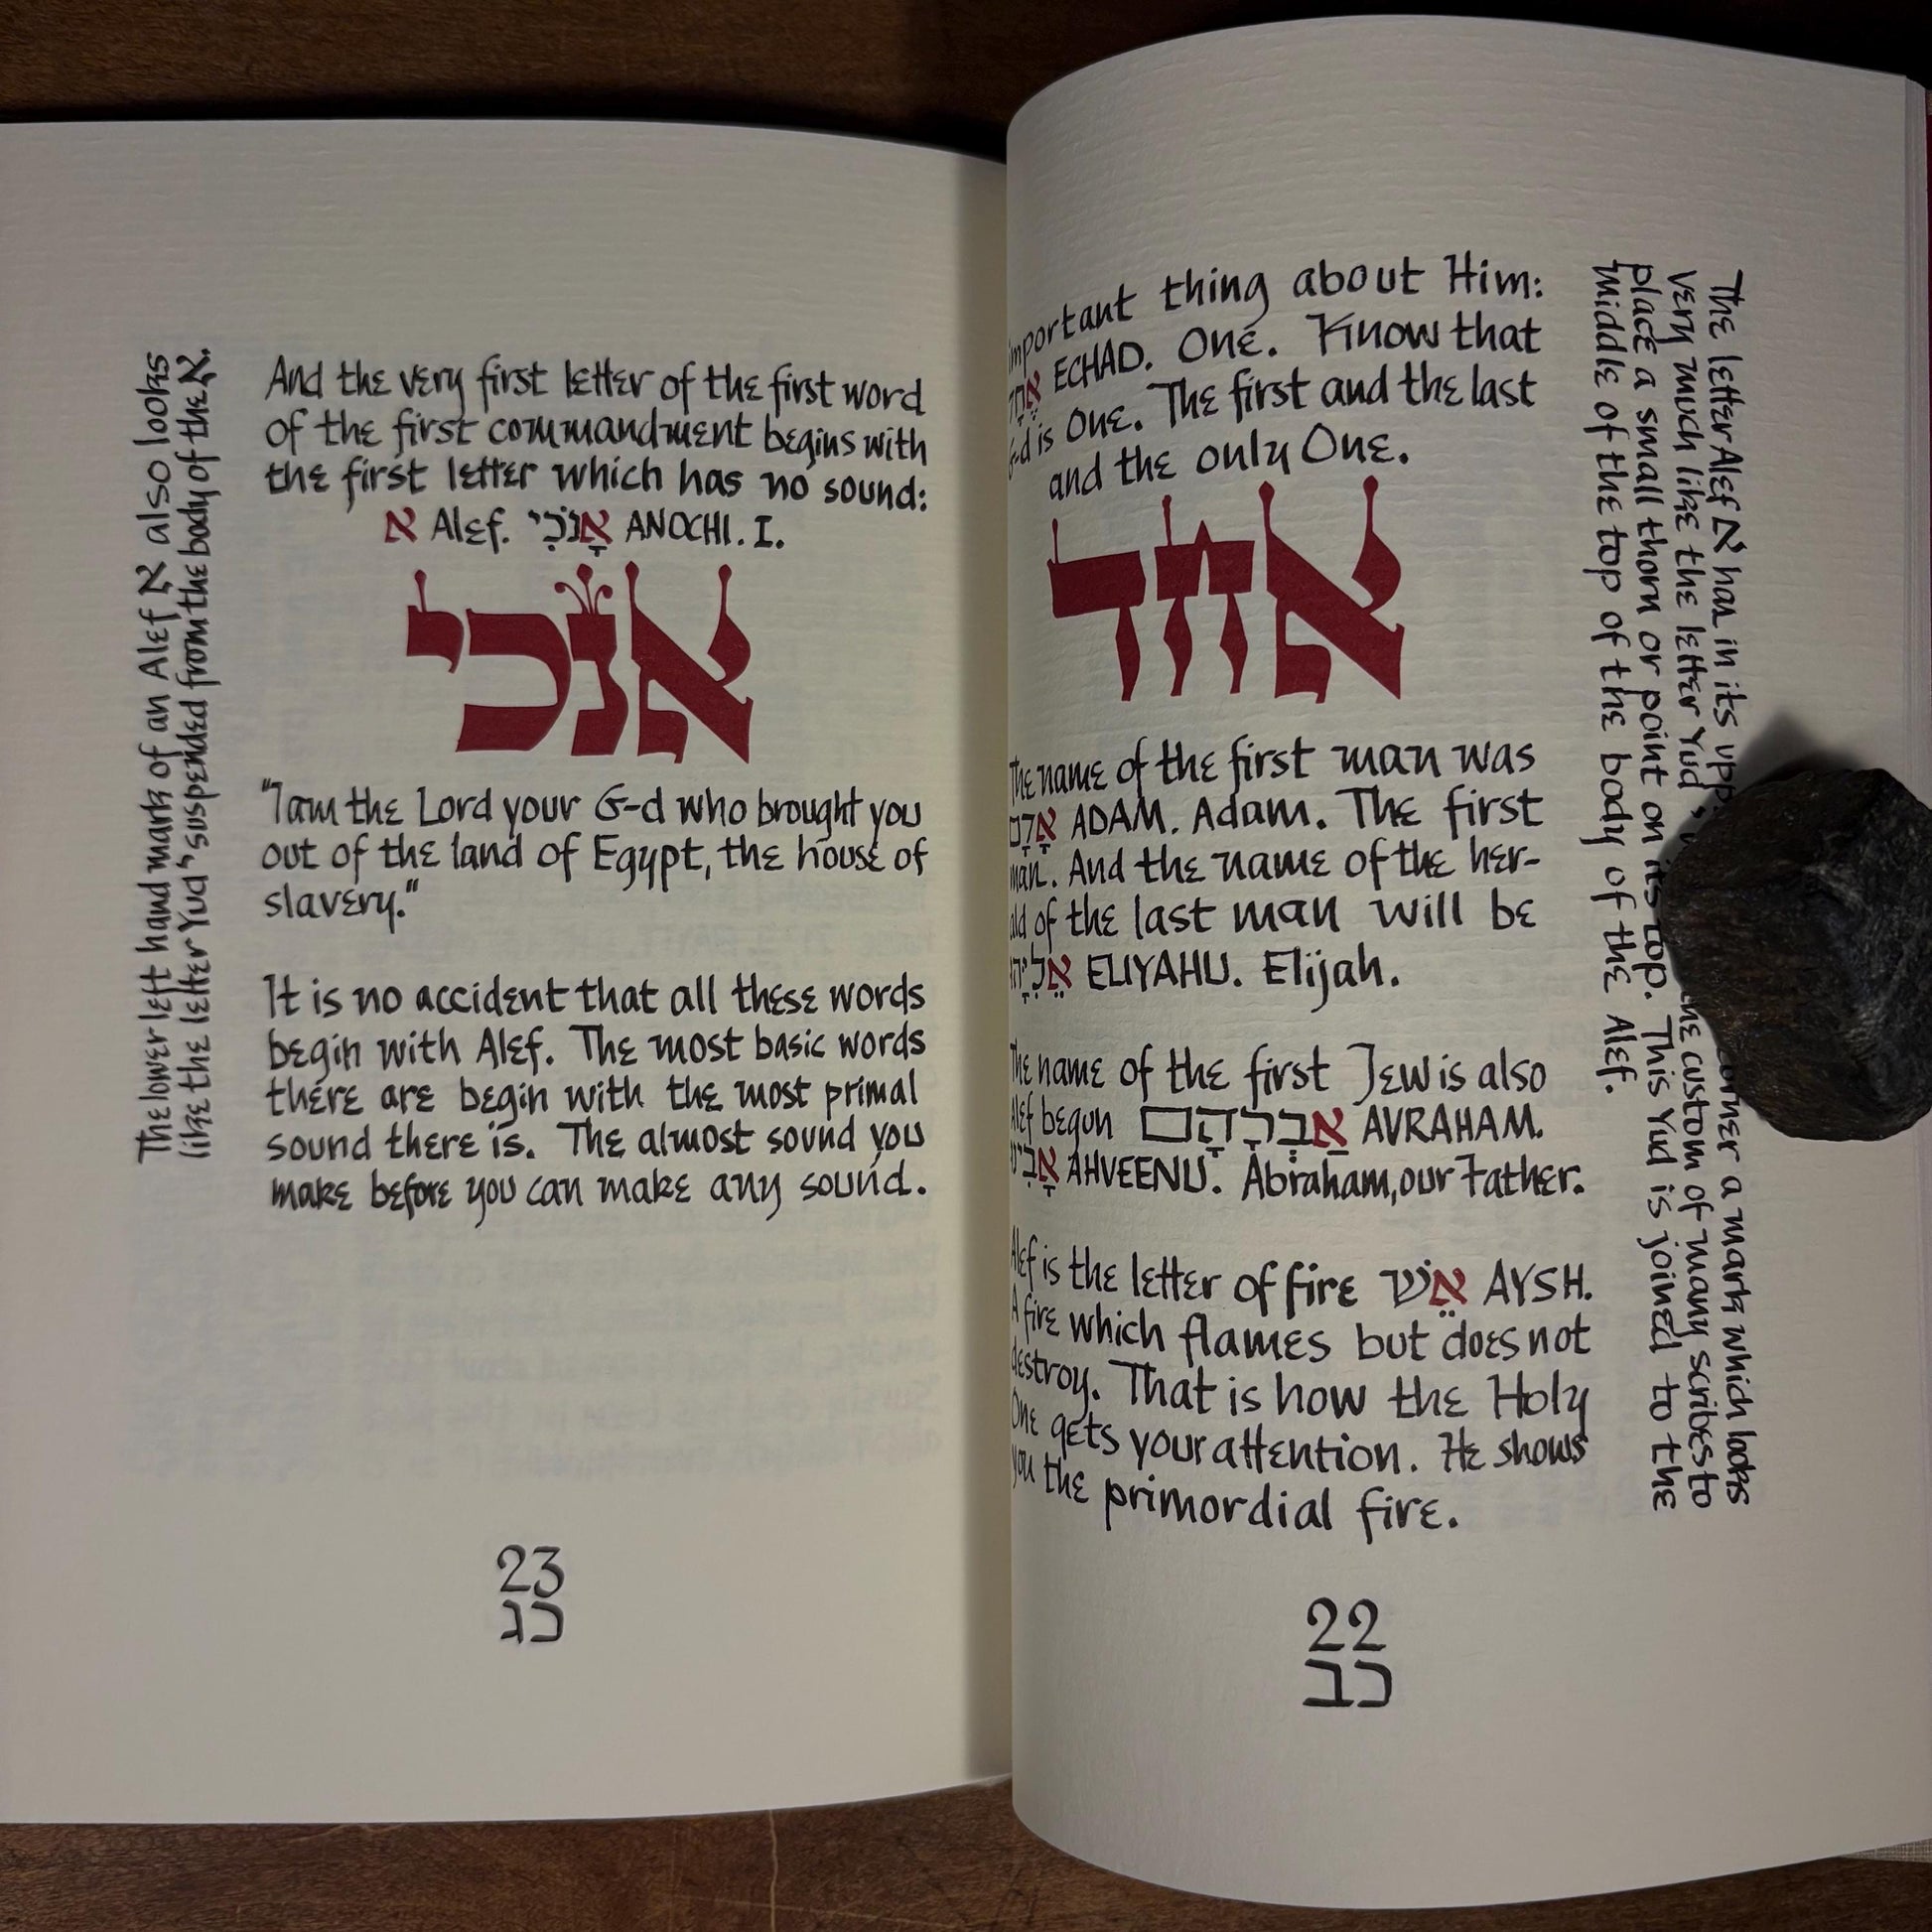 important thing about Him:
אֶחָד ECHAD. One. Know that
G-d is One. The first and the last
and the only One.
אחד
The name of the first man was
אָדָם ADAM. Adam. The first
man. And the name of the her-
ald of the last man will be
אֵלִיָּהוּ ELIYAHU. Elijah.
The name of the first Jew is also
Alef begun אַבְרָהָם AVRAHAM.
אָבִינוּ AHVEENU. Abraham, our Father.
Alef is the letter of fire אֵשׁ AYSH.
A fire which flames but does not
destroy. That is how the Holy
One gets your attention. He shows
you the primordial fire.
The letter Alef א has in its corner a mark which looks
very much like the letter Yud the custom of many scribes to
place a small thorn or point on its top. This Yud is joined to the
middle of the top of the body of the Alef.
22
כב
And the very first letter of the first word
of the first commandment begins with
the first letter which has no sound:
א Alef. אָנֹכִי ANOCHI. I.
אנכי
"I am the Lord your G-d who brought you
out of the land of Egypt, the house of
slavery."
It is no accident that all these words
begin with Alef. The most basic words
there are begin with the most primal
sound there is. The almost sound you
make before you can make any sound.
The lower left hand mark of an Alef א also looks
like the letter Yud י suspended from the body of the א.
23
כג